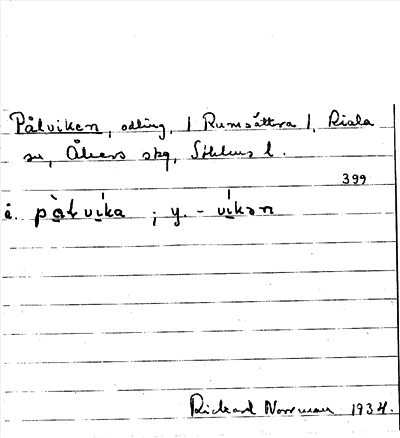 Pålviken, odling, / Rumsättra /, Riala
sn, Åkers skg, Sthlms l.
399
å. pàlvíka ; y. - víkən
Rickard Norrman 1934.